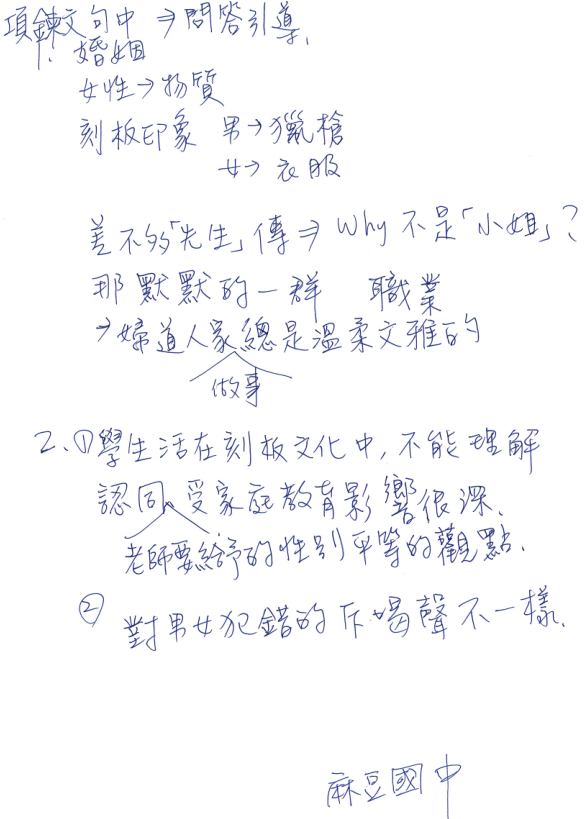 項鍊文句中 ⇒ 問答引導.
1. 婚姻
女性→物質
刻板印象 男→獵槍
女→衣服
差不多「先生」傳⇒ Why 不是「小姐」?
那默默的一群 職業
→婦道人家總是溫柔文雅的
做事
2、①學生活在刻板文化中,不能理解
認同、受家庭教育影響很深、
老師要給予的性別平等的觀點.
② 對男女犯錯的斥喝聲不一樣.
麻豆國中